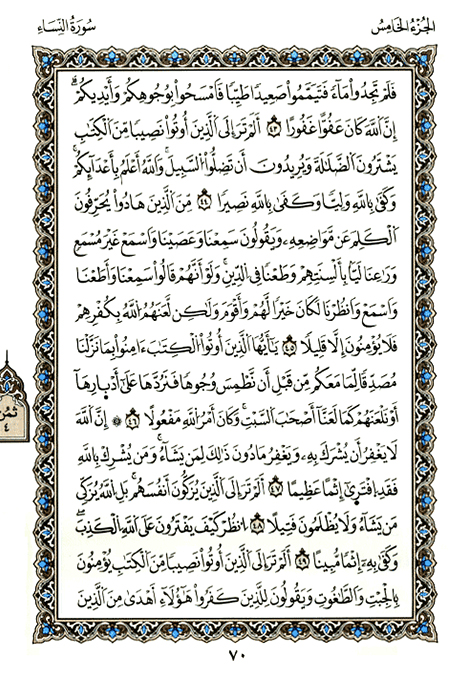 الجُزْءُ الخَامِسُ
سُورَةُ النِّسَاءِ
فَلَمْ تَجِدُواْ مَآءً فَتَيَمَّمُواْ صَعِيدًا طَيِّبًا فَامْسَحُواْ بِوُجُوهِكُمْ وَأَيْدِيكُمْ
إِنَّ اللَّهَ كَانَ عَفُوًّا غَفُورًا ٤٣ أَلَمْ تَرَ إِلَى الَّذِينَ أُوتُواْ نَصِيبًا مِّنَ الْكِتَٰبِ
يَشْتَرُونَ الضَّلَٰلَةَ وَيُرِيدُونَ أَن تَضِلُّواْ السَّبِيلَ وَاللَّهُ أَعْلَمُ بِأَعْدَآئِكُمْ
وَكَفَىٰ بِاللَّهِ وَلِيًّا وَكَفَىٰ بِاللَّهِ نَصِيرًا ٤٤ مِّنَ الَّذِينَ هَادُواْ يُحَرِّفُونَ
الْكَلِمَ عَن مَّوَاضِعِهِ وَيَقُولُونَ سَمِعْنَا وَعَصَيْنَا وَاسْمَعْ غَيْرَ مُسْمَعٍ
وَرَٰعِنَا لَيًّا بِأَلْسِنَتِهِمْ وَطَعْنًا فِي الدِّينِ وَلَوْ أَنَّهُمْ قَالُواْ سَمِعْنَا وَأَطَعْنَا
وَاسْمَعْ وَانظُرْنَا لَكَانَ خَيْرًا لَّهُمْ وَأَقْوَمَ وَلَٰكِن لَّعَنَهُمُ اللَّهُ بِكُفْرِهِمْ
فَلَا يُؤْمِنُونَ إِلَّا قَلِيلًا ٤٥ يَٰأَيُّهَا الَّذِينَ أُوتُواْ الْكِتَٰبَ ءَامِنُواْ بِمَا نَزَّلْنَا
مُصَدِّقًا لِّمَا مَعَكُم مِّن قَبْلِ أَن نَّطْمِسَ وُجُوهًا فَنَرُدَّهَا عَلَىٰ أَدْبَارِهَا
أَوْ نَلْعَنَهُمْ كَمَا لَعَنَّا أَصْحَٰبَ السَّبْتِ وَكَانَ أَمْرُ اللَّهِ مَفْعُولًا ٤٦ إِنَّ اللَّهَ
لَا يَغْفِرُ أَن يُشْرَكَ بِهِ وَيَغْفِرُ مَا دُونَ ذَٰلِكَ لِمَن يَشَآءُ وَمَن يُشْرِكْ بِاللَّهِ
فَقَدِ افْتَرَىٰ إِثْمًا عَظِيمًا ٤٧ أَلَمْ تَرَ إِلَى الَّذِينَ يُزَكُّونَ أَنفُسَهُم بَلِ اللَّهُ يُزَكِّي
مَن يَشَآءُ وَلَا يُظْلَمُونَ فَتِيلًا ٤٨ انظُرْ كَيْفَ يَفْتَرُونَ عَلَى اللَّهِ الْكَذِبَ
وَكَفَىٰ بِهِ إِثْمًا مُّبِينًا ٤٩ أَلَمْ تَرَ إِلَى الَّذِينَ أُوتُواْ نَصِيبًا مِّنَ الْكِتَٰبِ يُؤْمِنُونَ
بِالْجِبْتِ وَالطَّٰغُوتِ وَيَقُولُونَ لِلَّذِينَ كَفَرُواْ هَٰؤُلَآءِ أَهْدَىٰ مِنَ الَّذِينَ
ثمن
٤
٧٠